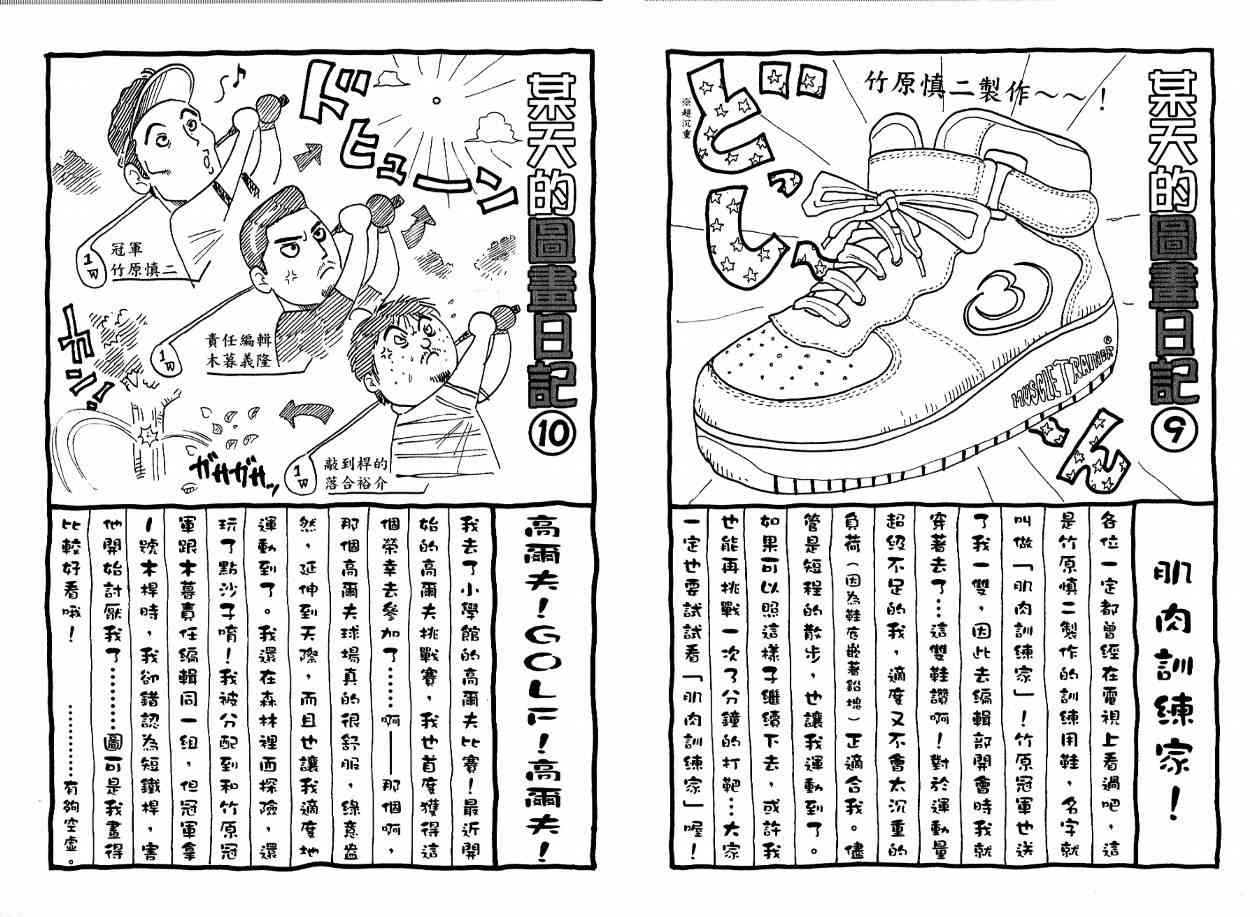 某天的圖畫日記⑨
竹原慎二製作～～！
※超沉重
ど
ど
じっ
ん
MUSCLE TRAINER®
肌肉訓練家！
各位一定都曾經在電視上看過吧，這
是竹原慎二製作的訓練用鞋，名字就
叫做「肌肉訓練家」！竹原冠軍也送
了我一雙，因此去編輯部開會時我就
穿著去了…這雙鞋讚啊！對於運動量
超級不足的我，適度又不會太沉重的
負荷（因為鞋底嵌著鉛塊）正適合我。儘
管是短程的散步，也讓我運動到了。
如果可以照這樣子繼續下去，或許我
也能再挑戰一次了分鐘的打靶…大家
一定也要試試看「肌肉訓練家」喔！
某天的圖畫日記⑩
ドヒューン
冠軍
竹原慎二
1W
責任編輯
木暮義隆
1W
敲到桿的
落合裕介
1W
カーン!!
ガサガサッ
高爾夫！GOLF！高爾夫！
我去了小學館的高爾夫比賽！最近開
始的高爾夫挑戰賽，我也首度獲得這
個榮幸去參加了……啊——那個啊，
那個高爾夫球場真的很舒服，綠意盎
然，延伸到天際，而且也讓我適度地
運動到了。我還在森林裡面探險，還
玩了點沙子唷！我被分配到和竹原冠
軍跟木暮責任編輯同一組，但冠軍拿
1號木桿時，我卻錯認為短鐵桿，害
他開始討厭我了…………圖可是我畫得
比較好看哦！　…………有夠空虛。